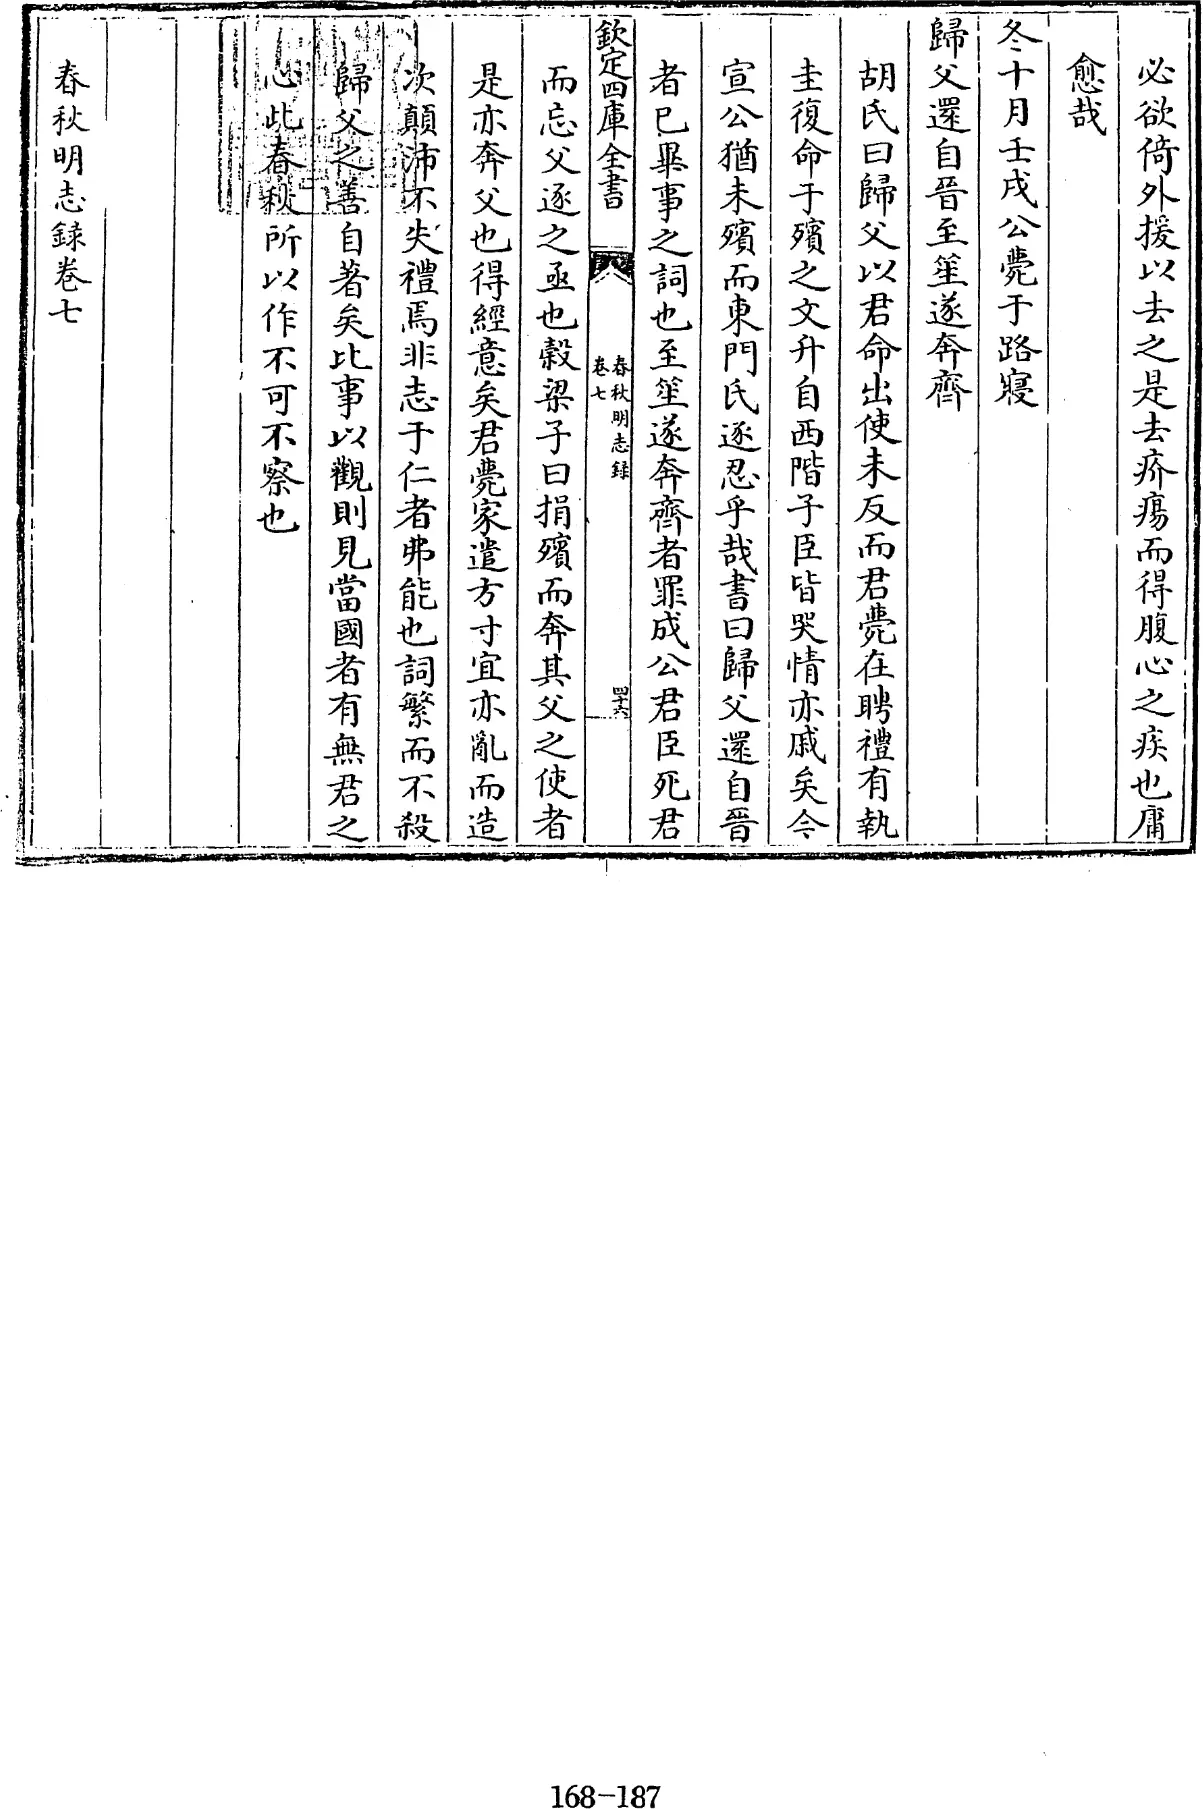 必欲倚外援以去之是去疥瘍而得腹心之疾也庸
愈哉
冬十月壬戌公薨于路寢
歸父還自晉至笙遂奔齊
胡氏曰歸父以君命出使未反而君薨在聘禮有執
圭復命于殯之文升自西階子臣皆哭情亦戚矣今
宣公猶未殯而東門氏逐忍乎哉書曰歸父還自晉
者已畢事之詞也至笙遂奔齊者罪成公君臣死君
欽定四庫全書
春秋明志録
卷七
四十六
而忘父逐之亟也榖梁子曰捐殯而奔其父之使者
是亦奔父也得經意矣君薨家遣方寸宜亦亂而造
次顛沛不失禮焉非志于仁者弗能也詞繁而不殺
歸父之善自著矣比事以觀則見當國者有無君之
心此春秋所以作不可不察也
春秋明志録卷七
168-187